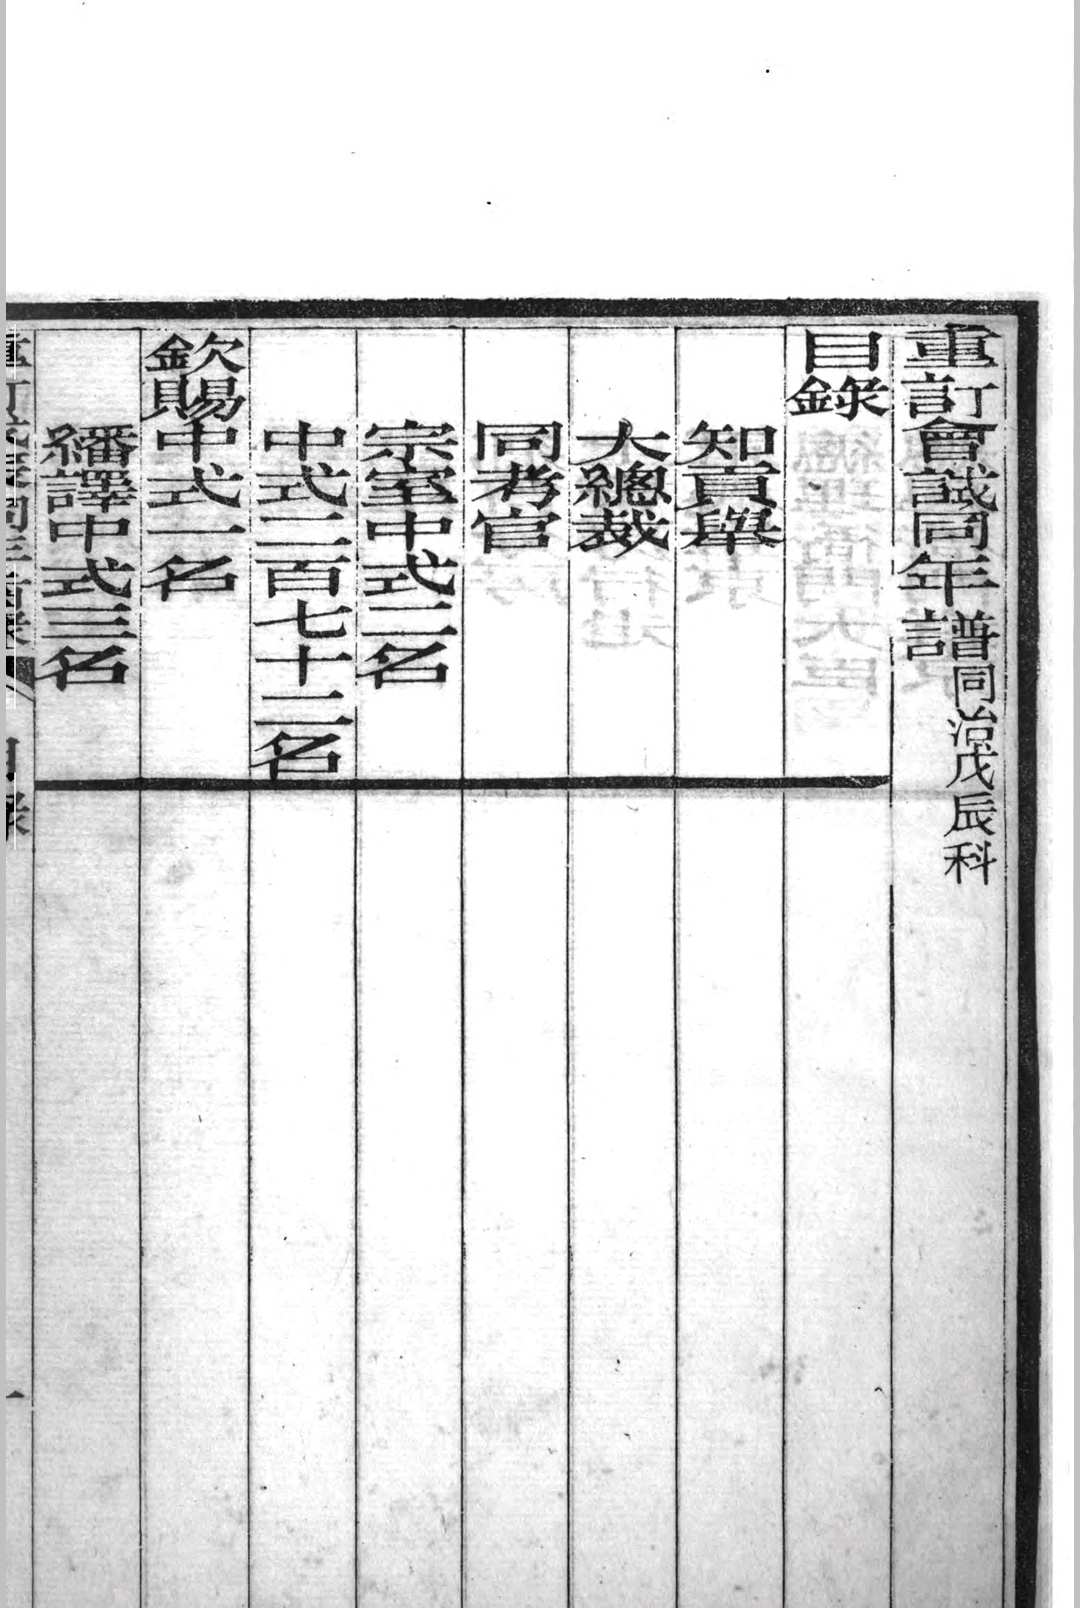 重訂會試同年譜 同治戊辰科
目錄
知貢舉
大總裁
同考官
宗室中式二名
中式二百七十二名
欽賜中式一名
繙譯中式三名